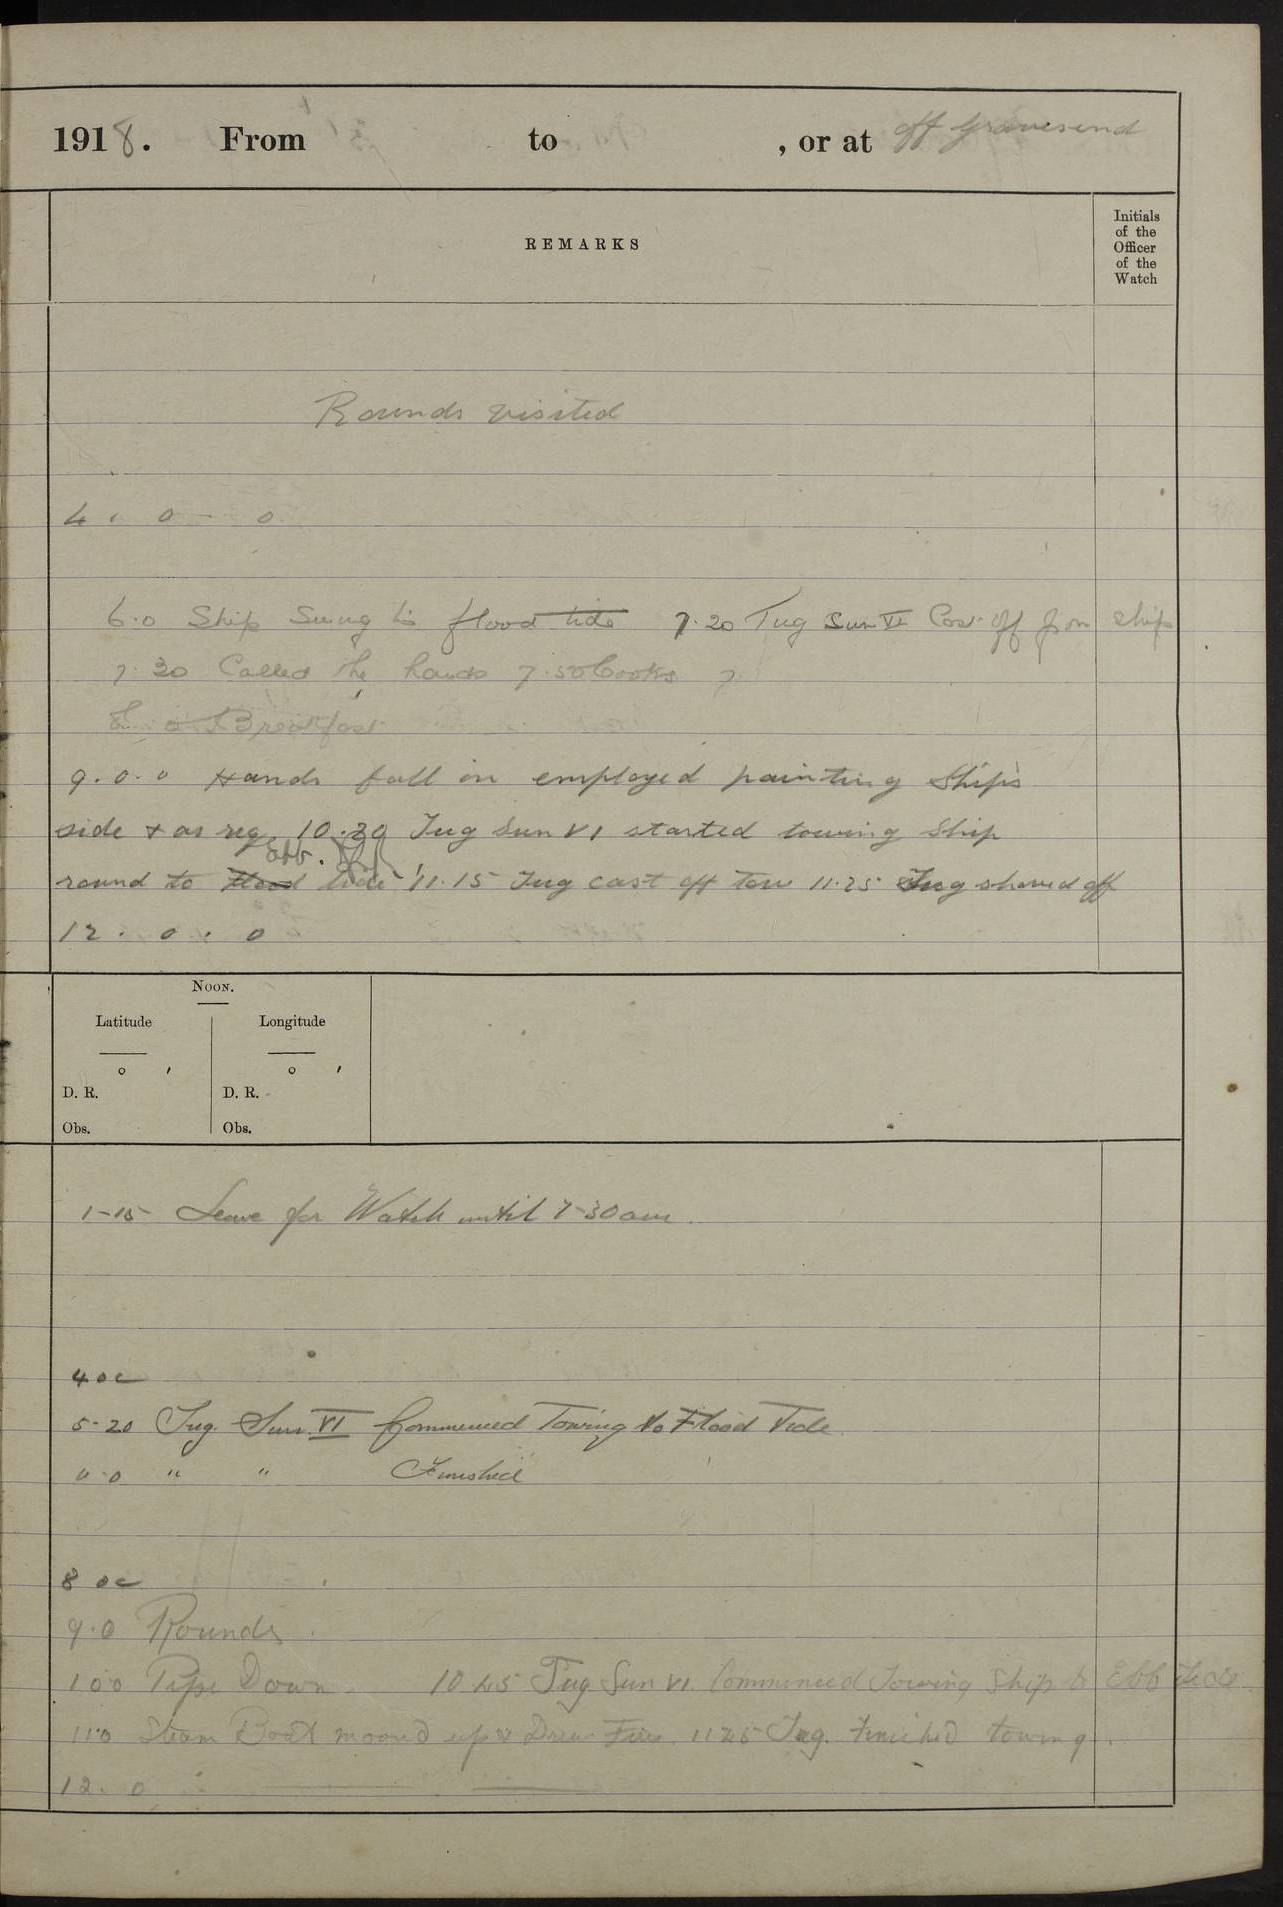 1918. From to , or at off Gravesend
REMARKS
Initials
of the
Officer
of the
Watch
Rounds visited
4 . 0 . 0
6.0 Ship Swung to flood tide 7.20 Tug Sun VI Cast off from ship
7.30 Called the hands 7.50 Cooks
Breakfast
9.0.0 Hands fall in employed painting Ship's
side & as req. 10.30 Tug Sun VI started towing Ship
Ebb.
round to Flood tide 11.15 Tug cast off tow 11.25 Tug shoved off
12 . 0 . 0
NOON.
Latitude Longitude
° ′ ° ′
D. R. D. R.
Obs. Obs.
1-15 Leave for Watch until 7-30 am.
4 oc
5-20 Tug. Sun VI Commenced Towing to Flood Tide.
" " Finished
8 oc
9.0 Rounds.
10.0 Pipe Down. 10.45 Tug Sun VI. Commenced Towing Ship to Ebb Tide
11.0 Steam Boat moored up & Drew Fires. 11.45 Tug. finished towing.
12. 0